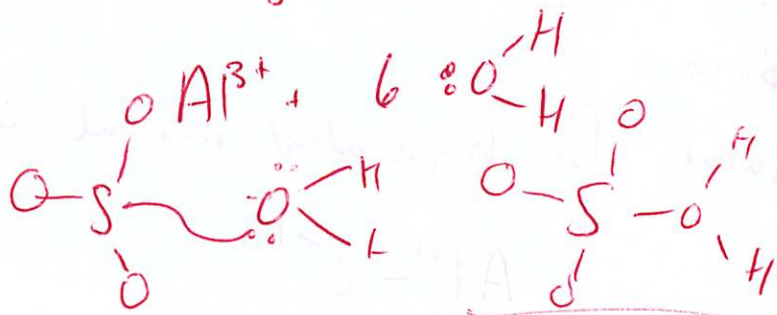 Al³⁺ + 6 :O H H
O O S O O H H
O O S O O H H